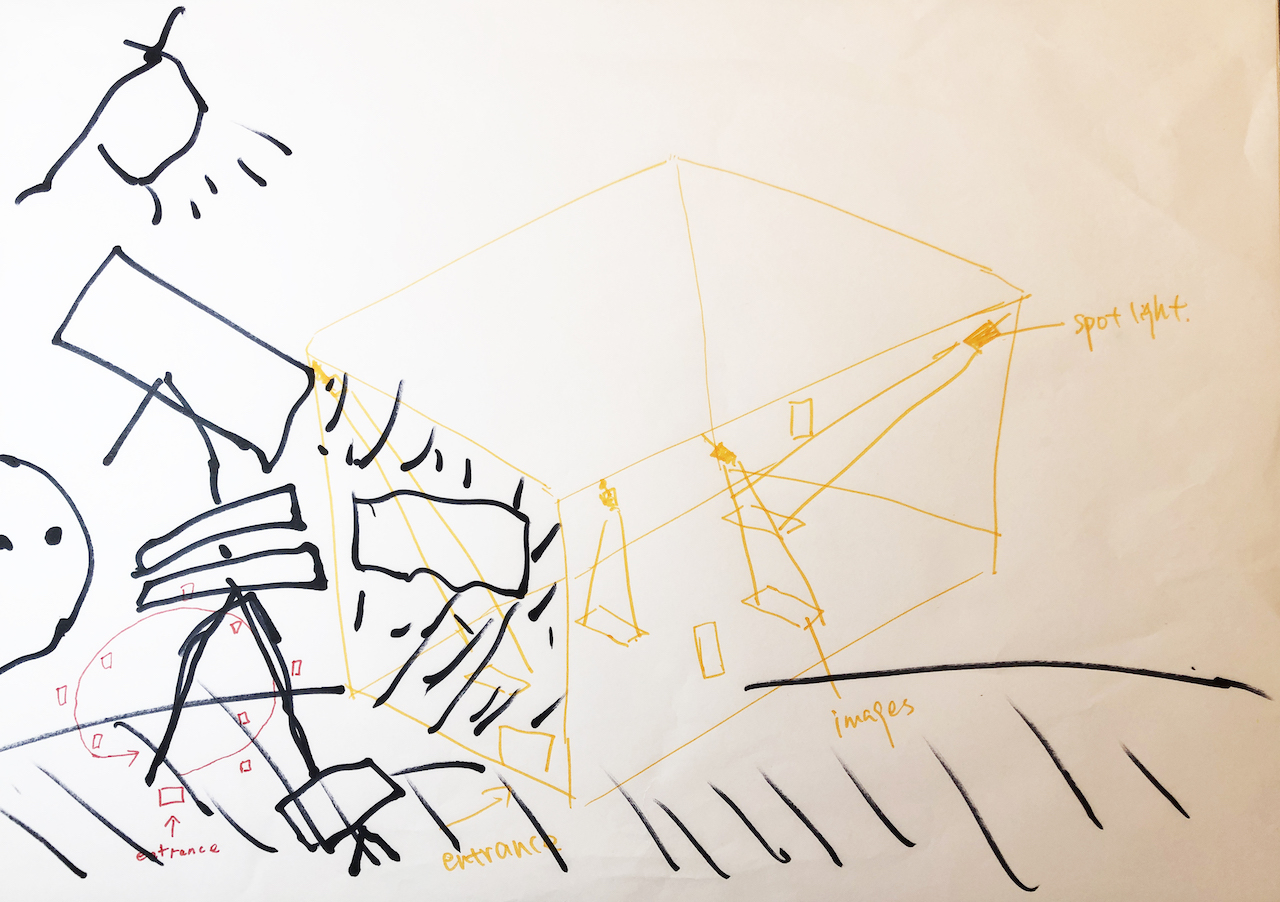 spot light.
images
entrance
entrance